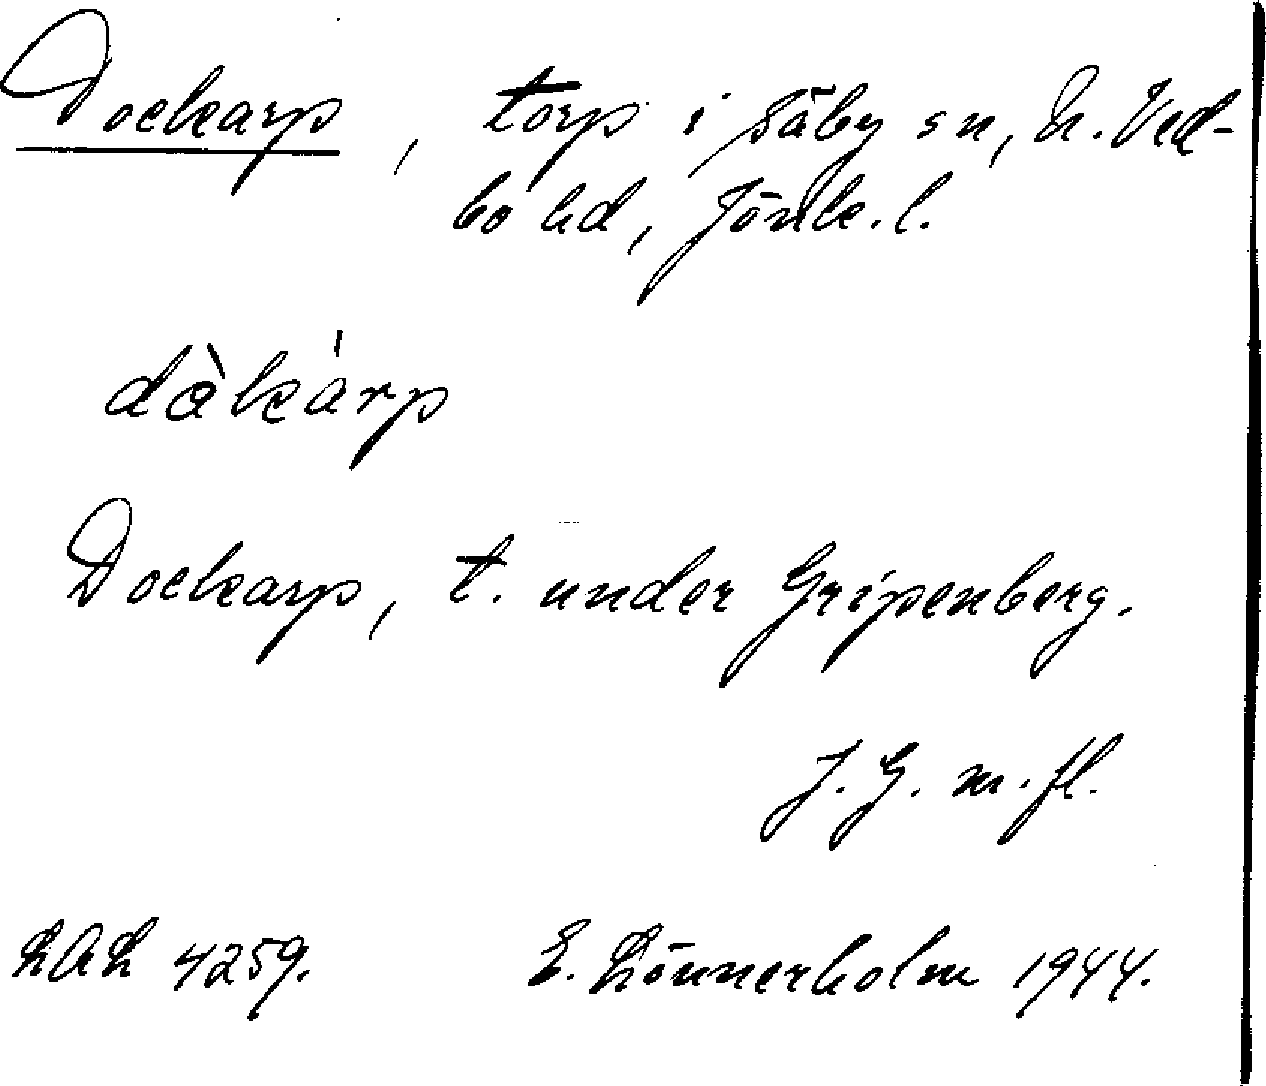 Dockarp, torp i Säby sn, N. Ved-
bo hd, Jönk. l.
dàkárp
Dockarp, t. under Gripenberg.
J. G. m. fl.
LAL 4259. E. Lönnerholm 1944.